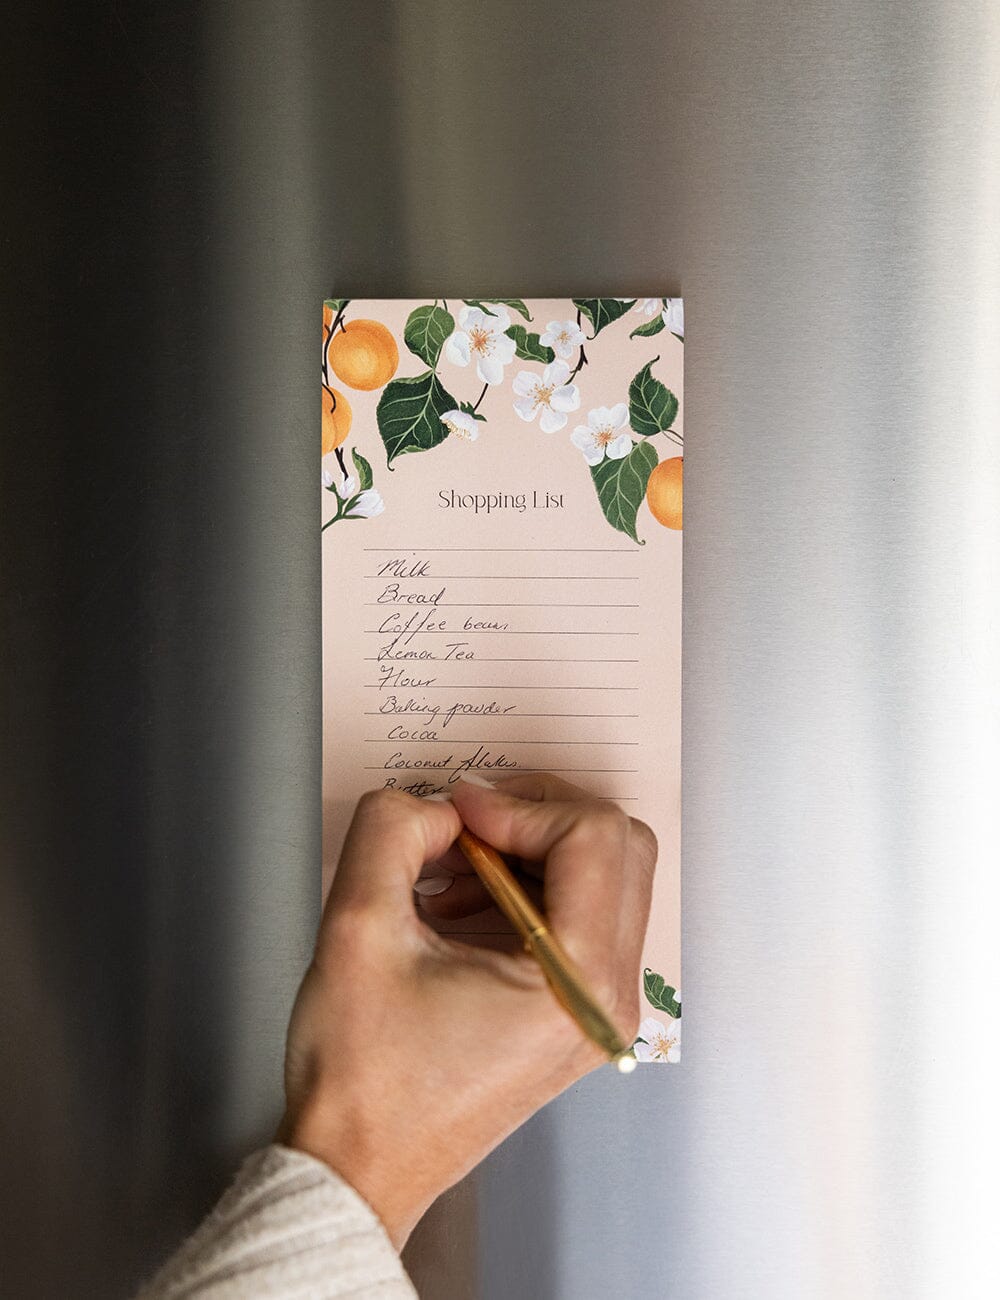 Shopping List
Milk
Bread
Coffee beans
Lemon Tea
Flour
Baking powder
Cocoa
Coconut flakes
Butter